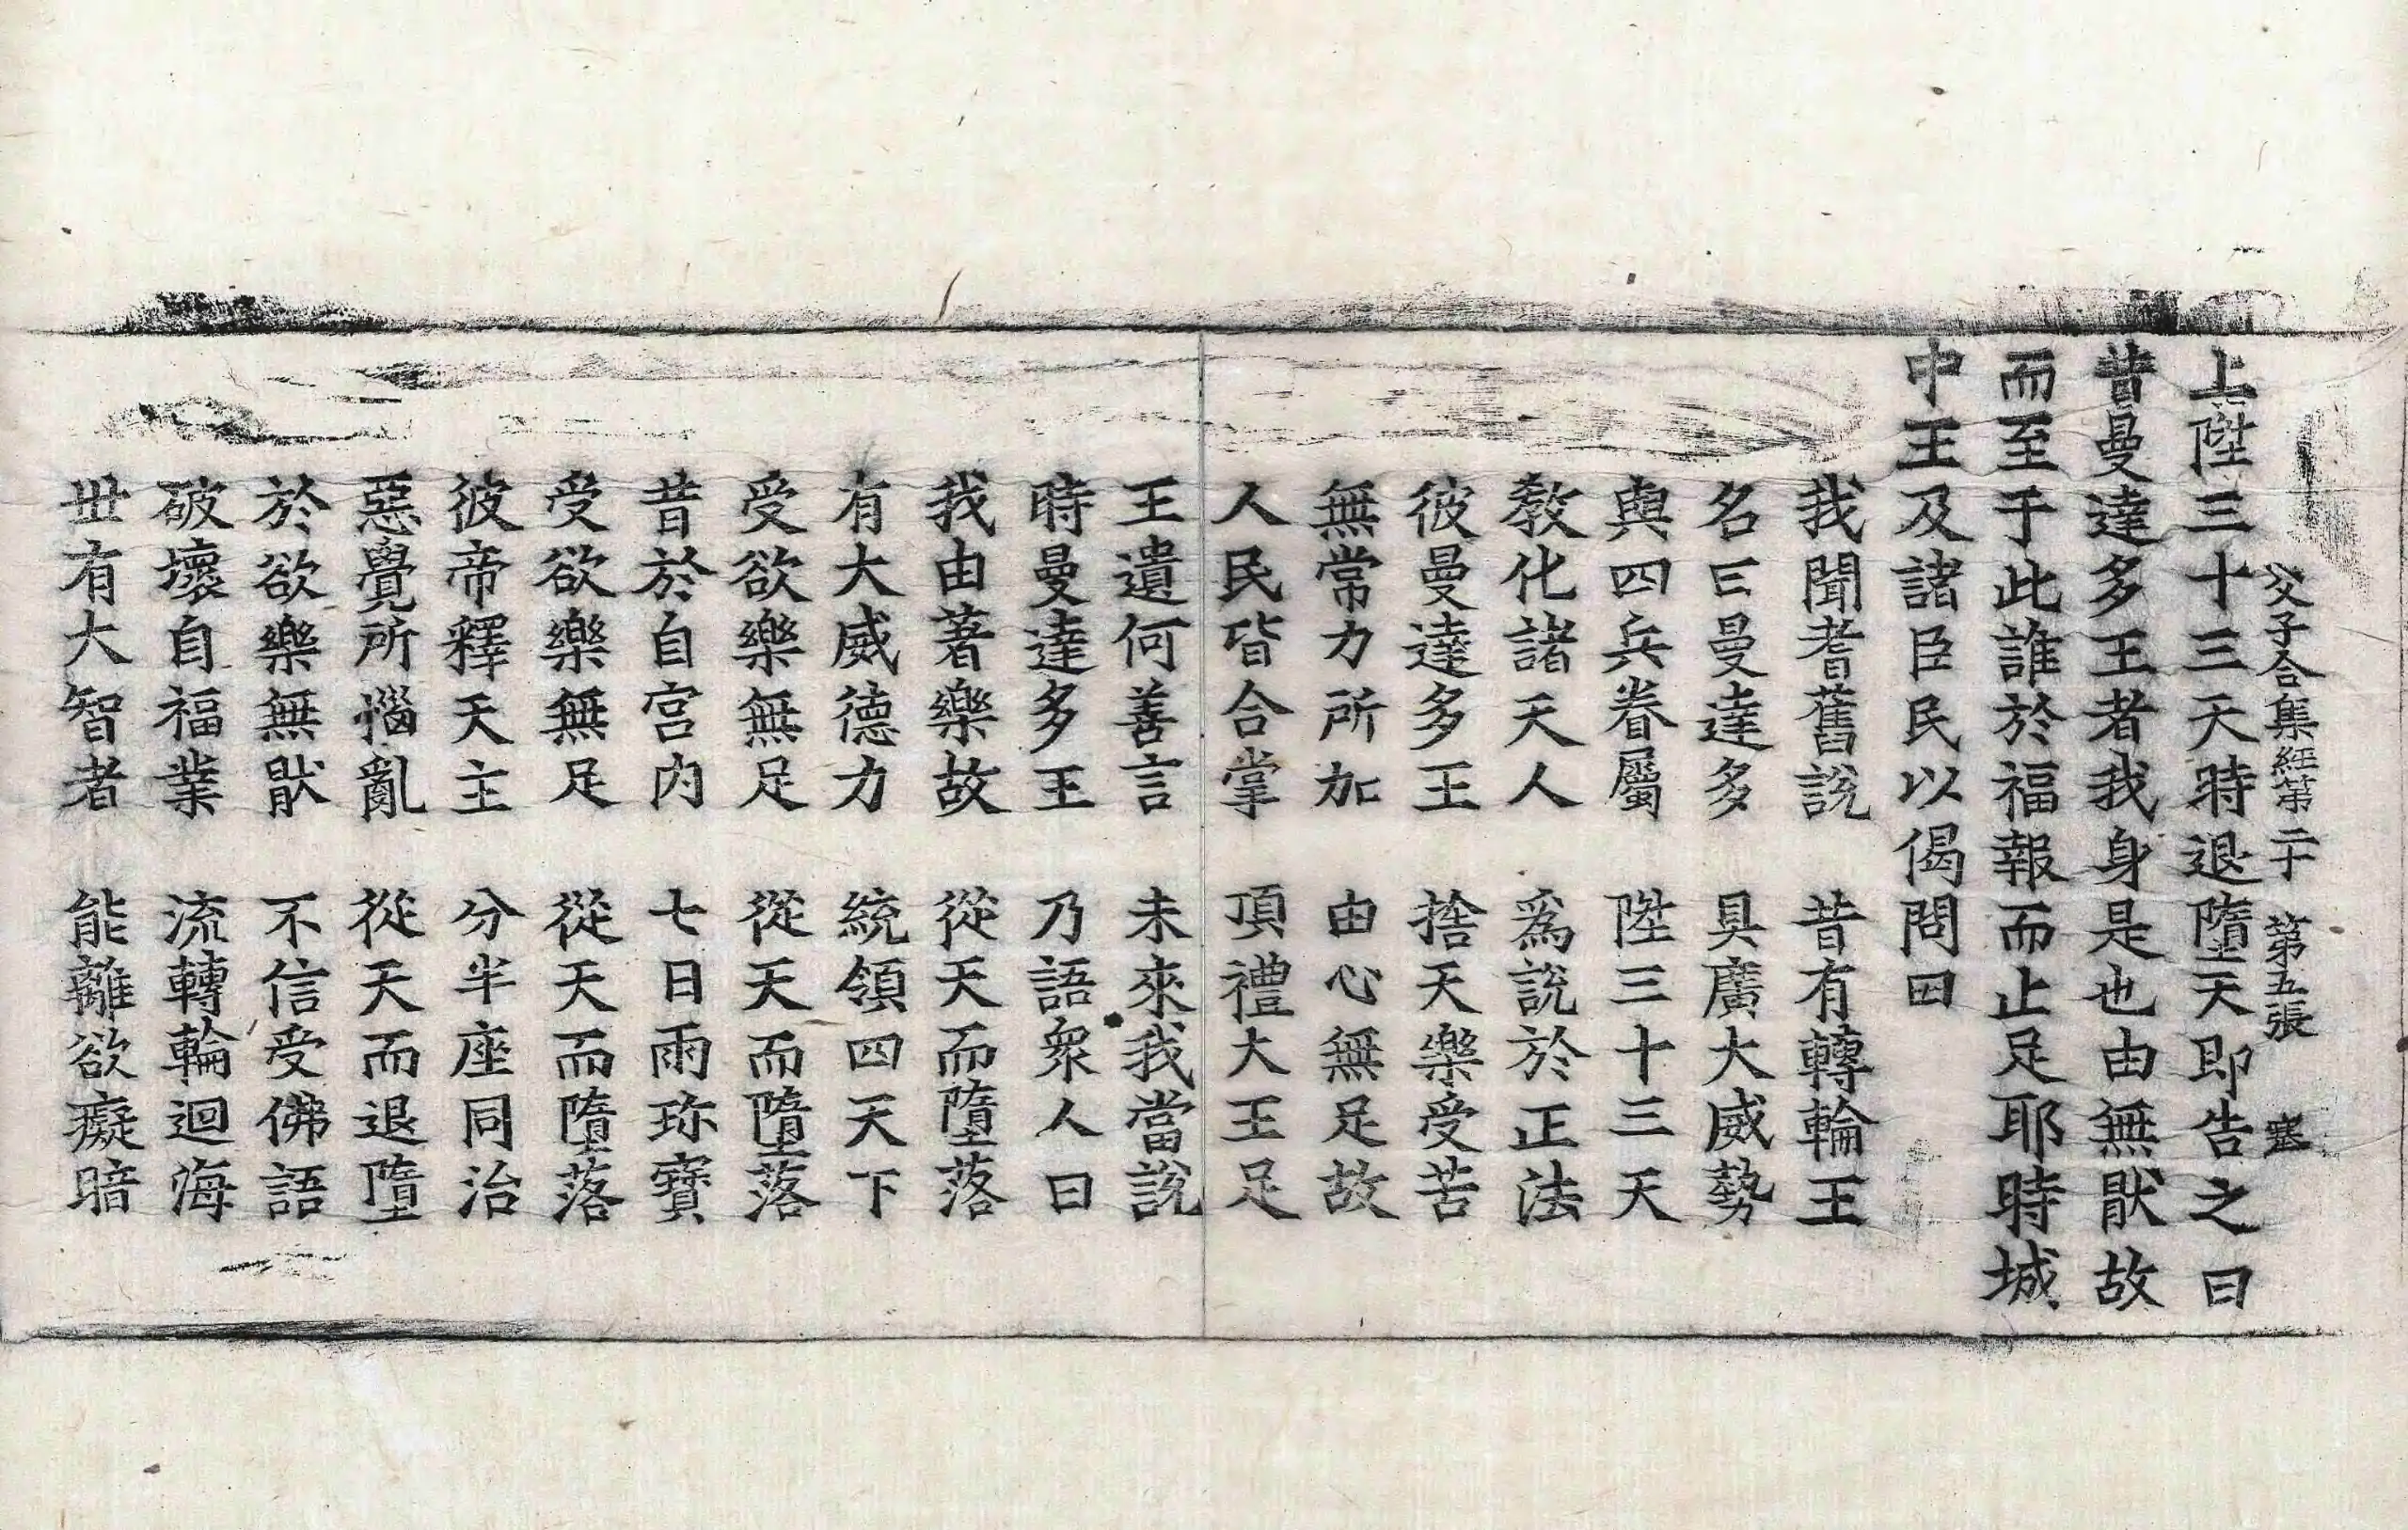 父子合集經第二十 第五張 塞
上陞三十三天時退墮天即告之曰
昔曼達多王者我身是也由無猒故
而至于此誰於福報而止足耶時城
中王及諸臣民以偈問曰
我聞耆舊說 昔有轉輪王
名曰曼達多 具廣大威勢
與四兵眷屬 陞三十三天
教化諸天人 爲說於正法
彼曼達多王 捨天樂受苦
無常力所加 由心無足故
人民皆合掌 頂禮大王足
王遺何善言 未來我當說
時曼達多王 乃語衆人曰
我由著樂故 從天而墮落
有大威德力 統領四天下
受欲樂無足 從天而墮落
昔於自宮內 七日雨珎寶
受欲樂無足 從天而墮落
彼帝釋天主 分半座同治
惡覺所惱亂 從天而退墮
於欲樂無猒 不信受佛語
破壞自福業 流轉輪迴海
丗有大智者 能離欲癡暗